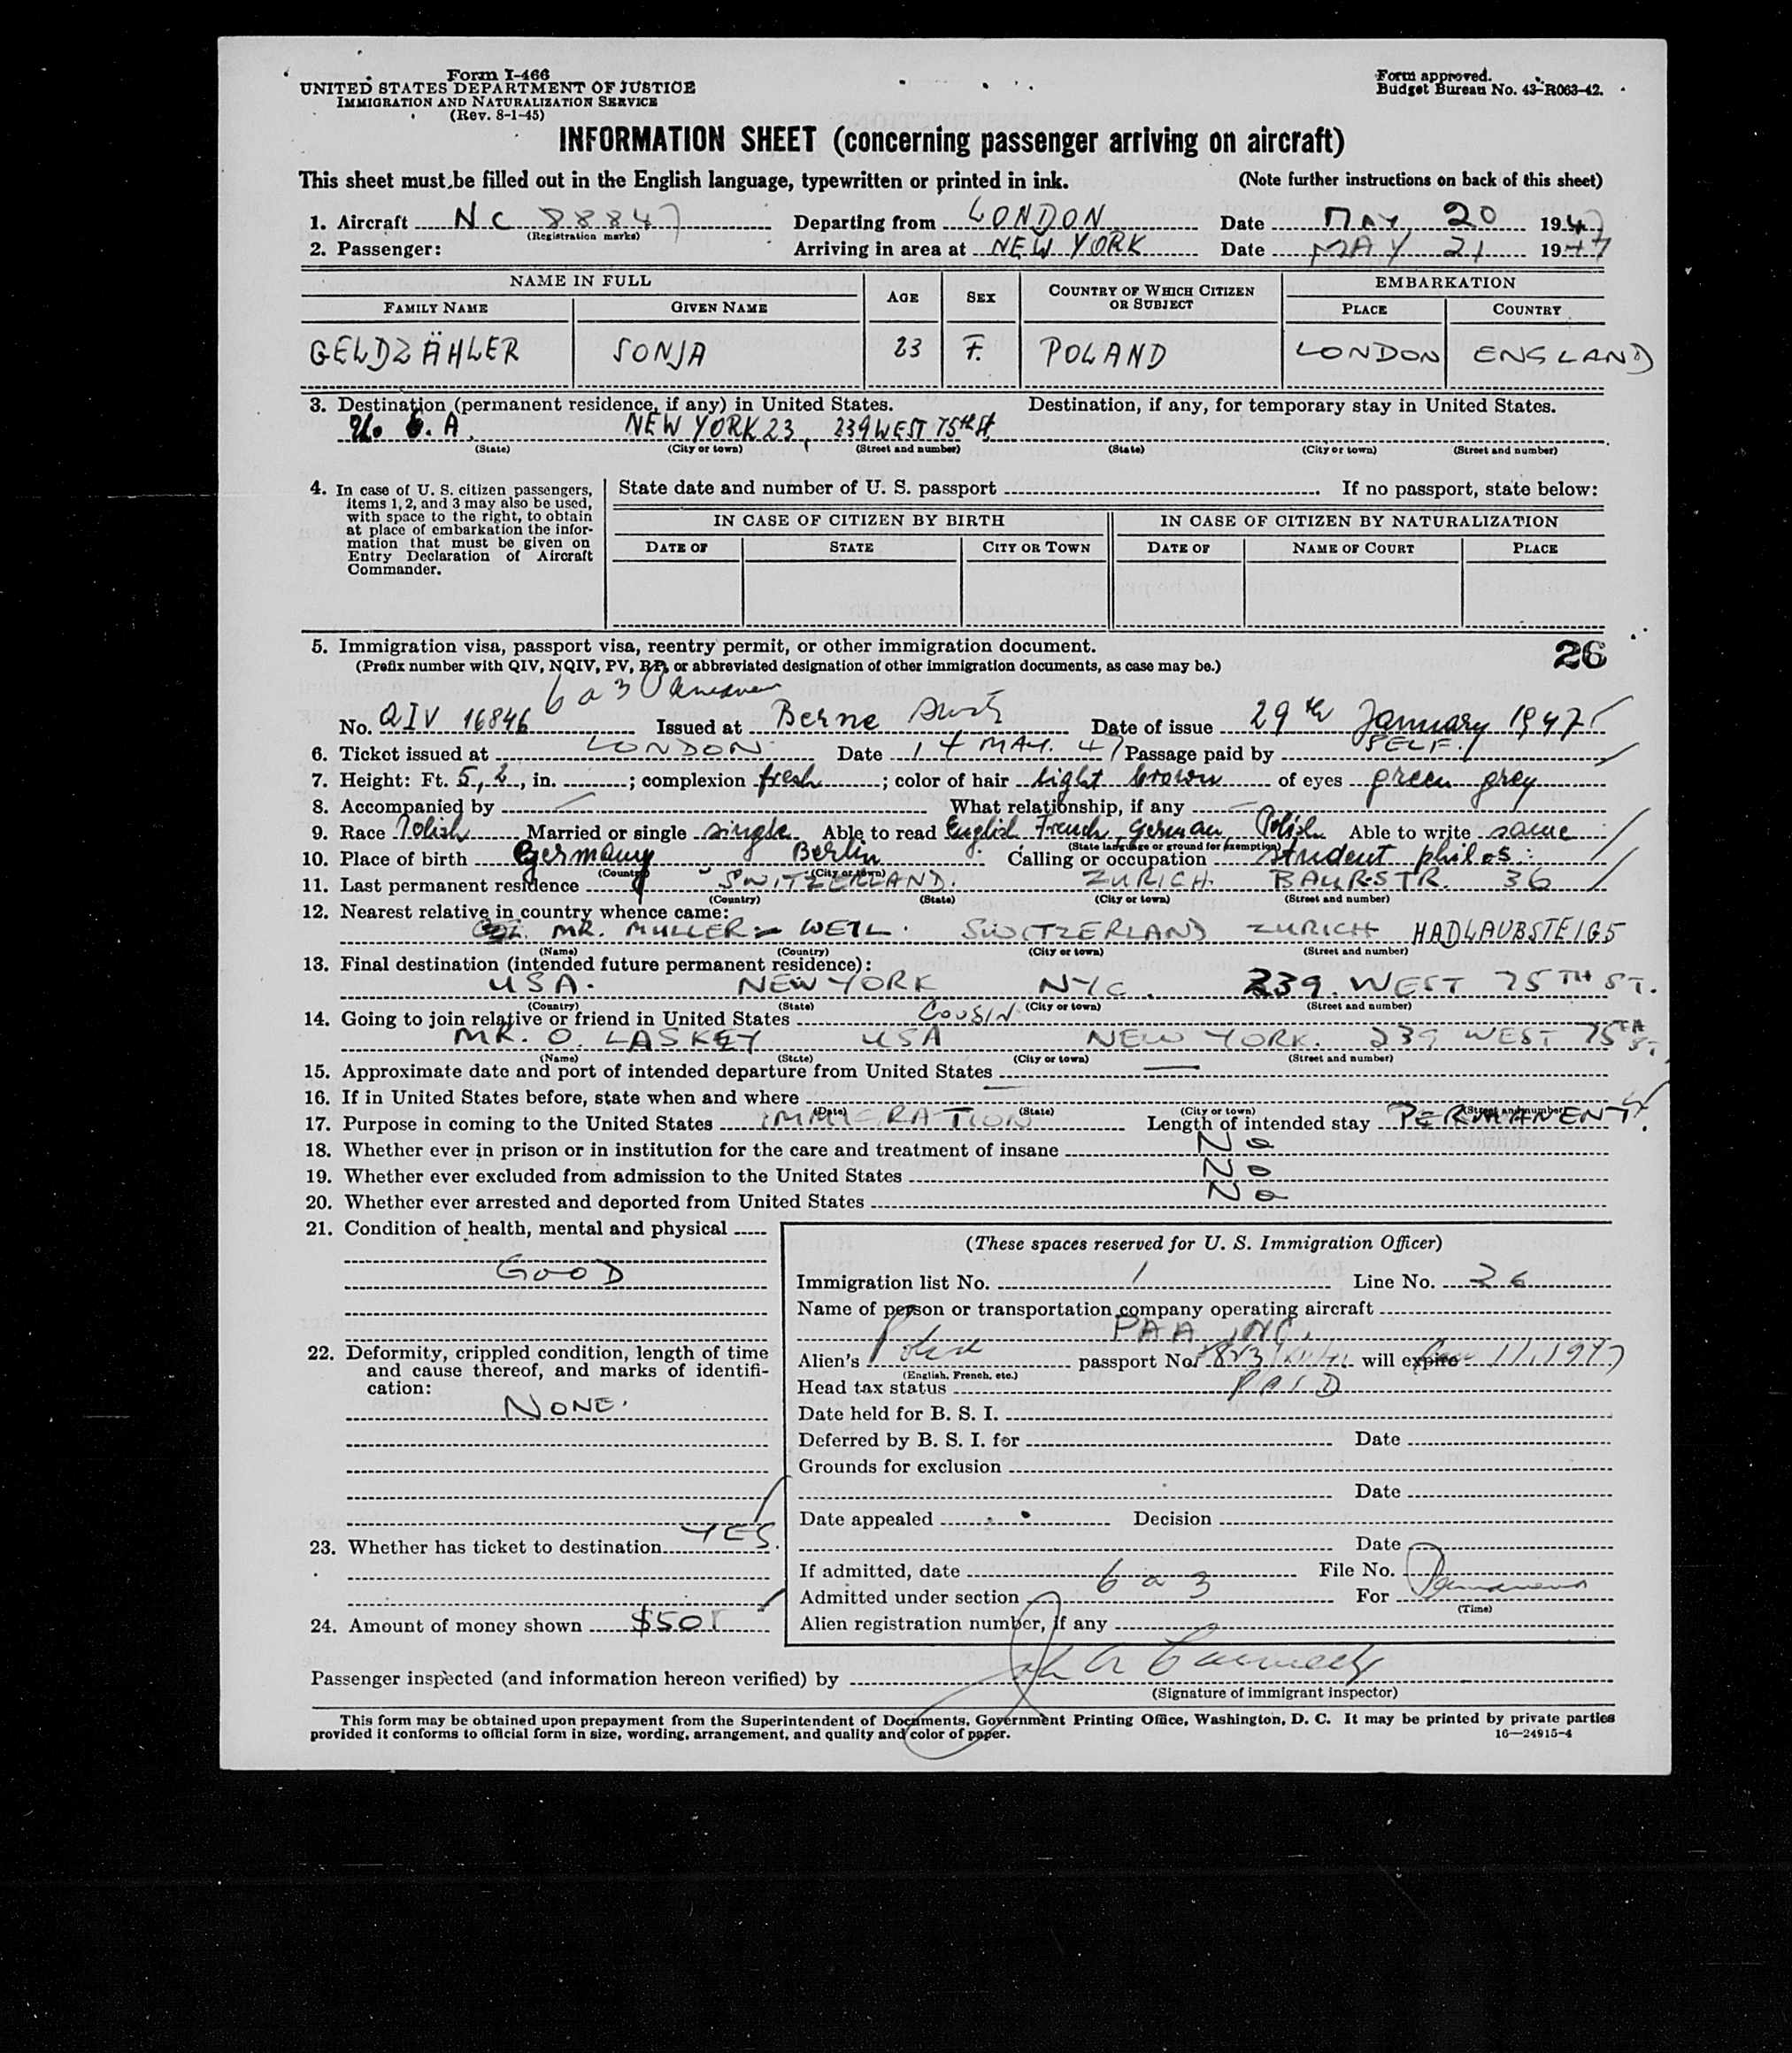 Form I-466
UNITED STATES DEPARTMENT OF JUSTICE
IMMIGRATION AND NATURALIZATION SERVICE
(Rev. 8-1-45)
Form approved.
Budget Bureau No. 43-R063-42.
INFORMATION SHEET (concerning passenger arriving on aircraft)
This sheet must be filled out in the English language, typewritten or printed in ink. (Note further instructions on back of this sheet)
1. Aircraft NC 88847 Departing from LONDON Date MAY 20 1947
(Registration marks)
2. Passenger: Arriving in area at NEW YORK Date MAY 21 1947
NAME IN FULL AGE SEX COUNTRY OF WHICH CITIZEN OR SUBJECT EMBARKATION
FAMILY NAME GIVEN NAME PLACE COUNTRY
GELDZÄHLER SONJA 23 F. POLAND LONDON ENGLAND
3. Destination (permanent residence, if any) in United States. Destination, if any, for temporary stay in United States.
U. S. A. NEW YORK 23, 239 WEST 75th St.
(State) (City or town) (Street and number) (State) (City or town) (Street and number)
4. In case of U. S. citizen passengers, items 1, 2, and 3 may also be used, with space to the right, to obtain at place of embarkation the information that must be given on Entry Declaration of Aircraft Commander.
State date and number of U. S. passport. If no passport, state below:
IN CASE OF CITIZEN BY BIRTH IN CASE OF CITIZEN BY NATURALIZATION
DATE OF STATE CITY OR TOWN DATE OF NAME OF COURT PLACE
5. Immigration visa, passport visa, reentry permit, or other immigration document. 26
(Prefix number with QIV, NQIV, PV, RP, or abbreviated designation of other immigration documents, as case may be.)
6 a 3 Permanent
No. QIV 16846 Issued at Berne Date of issue 29th January 1947
6. Ticket issued at LONDON Date 14 MAY. 47 Passage paid by SELF.
7. Height: Ft. 5, 2, in. ; complexion fresh ; color of hair light brown of eyes green grey
8. Accompanied by — What relationship, if any —
9. Race Polish Married or single single Able to read English French German Polish Able to write same
(State language or ground for exemption)
10. Place of birth Germany Berlin Calling or occupation student philos.
(Country) (City or town)
11. Last permanent residence SWITZERLAND. ZURICH BAURSTR. 36
(Country) (State) (City or town) (Street and number)
12. Nearest relative in country whence came:
MR. MULLER - WEIL. SWITZERLAND ZURICH HADLAUBSTEIG 5
(Name) (Country) (City or town) (Street and number)
13. Final destination (intended future permanent residence):
USA. NEW YORK NYC. 239. WEST 75TH ST.
(Country) (State) (City or town) (Street and number)
14. Going to join relative or friend in United States COUSIN
MR. O. LASKEY USA NEW YORK. 239 WEST 75TH ST.
(Name) (State) (City or town) (Street and number)
15. Approximate date and port of intended departure from United States —
16. If in United States before, state when and where —
(Date) (State) (City or town) (Street and number)
17. Purpose in coming to the United States IMMIGRATION Length of intended stay PERMANENT.
18. Whether ever in prison or in institution for the care and treatment of insane No
19. Whether ever excluded from admission to the United States No
20. Whether ever arrested and deported from United States No
21. Condition of health, mental and physical
GOOD
22. Deformity, crippled condition, length of time and cause thereof, and marks of identification:
NONE.
23. Whether has ticket to destination YES.
24. Amount of money shown $50
(These spaces reserved for U. S. Immigration Officer)
Immigration list No. 1 Line No. 26
Name of person or transportation company operating aircraft
PAA INC.
Alien's Polish passport No. will expire 11, 1947
(English, French, etc.)
Head tax status PAID
Date held for B. S. I.
Deferred by B. S. I. for Date
Grounds for exclusion
Date
Date appealed Decision
Date
If admitted, date File No.
Admitted under section 6 a 3 For Permanent
(Time)
Alien registration number, if any
Passenger inspected (and information hereon verified) by
(Signature of immigrant inspector)
This form may be obtained upon prepayment from the Superintendent of Documents, Government Printing Office, Washington, D. C. It may be printed by private parties
provided it conforms to official form in size, wording, arrangement, and quality and color of paper. 16—24915-4